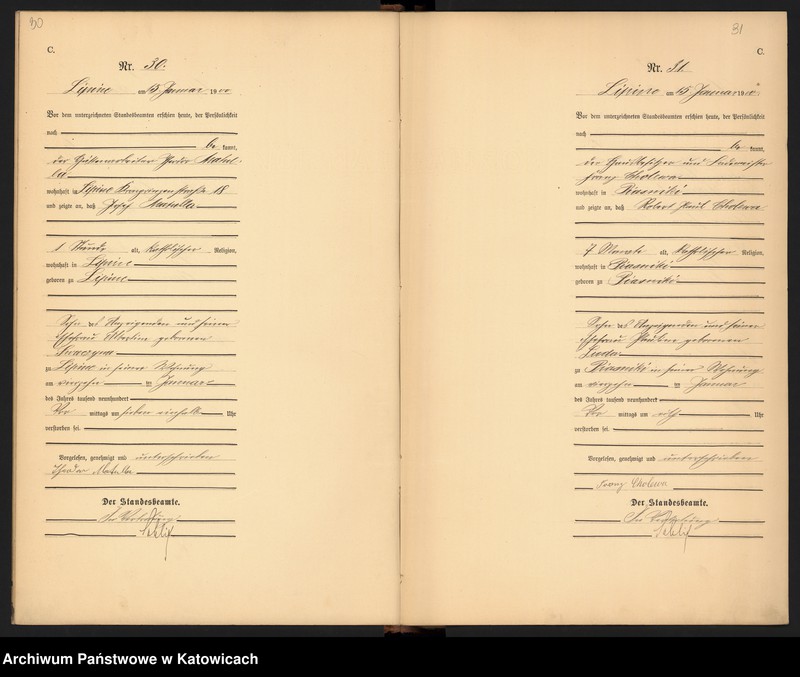 30
C.
Nr. 30.
Lipine am 15 Januar 1900
Vor dem unterzeichneten Standesbeamten erschien heute, der Persönlichkeit
nach
be kannt,
der Hüttenarbeiter Theodor
wohnhaft in Lipine 18
und zeigte an, daß Josef
1 Stunde alt, katholischer Religion,
wohnhaft in Lipine
geboren zu Lipine
Sohn des Anzeigenden und seiner
Ehefrau Albertine geborenen
zu Lipine in seiner Wohnung
am vierzehn ten Januar
des Jahres tausend neunhundert
Vor mittags um sieben einhalb Uhr
verstorben sei.
Vorgelesen, genehmigt und unterschrieben
Theodor
Der Standesbeamte.
In Vertretung
31
C.
Nr. 31.
Lipine am 15 Januar 1900
Vor dem unterzeichneten Standesbeamten erschien heute, der Persönlichkeit
nach
be kannt,
der Hausbesitzer und
Franz Cholewa
wohnhaft in Piasniki
und zeigte an, daß Robert Paul Cholewa
7 Monate alt, katholischer Religion,
wohnhaft in Piasniki
geboren zu Piasniki
Sohn des Anzeigenden und seiner
Ehefrau Pauline geborenen
zu Piasniki in seiner Wohnung
am vierzehn ten Januar
des Jahres tausend neunhundert
Vor mittags um acht Uhr
verstorben sei.
Vorgelesen, genehmigt und unterschrieben
Franz Cholewa
Der Standesbeamte.
In Vertretung
Archiwum Państwowe w Katowicach